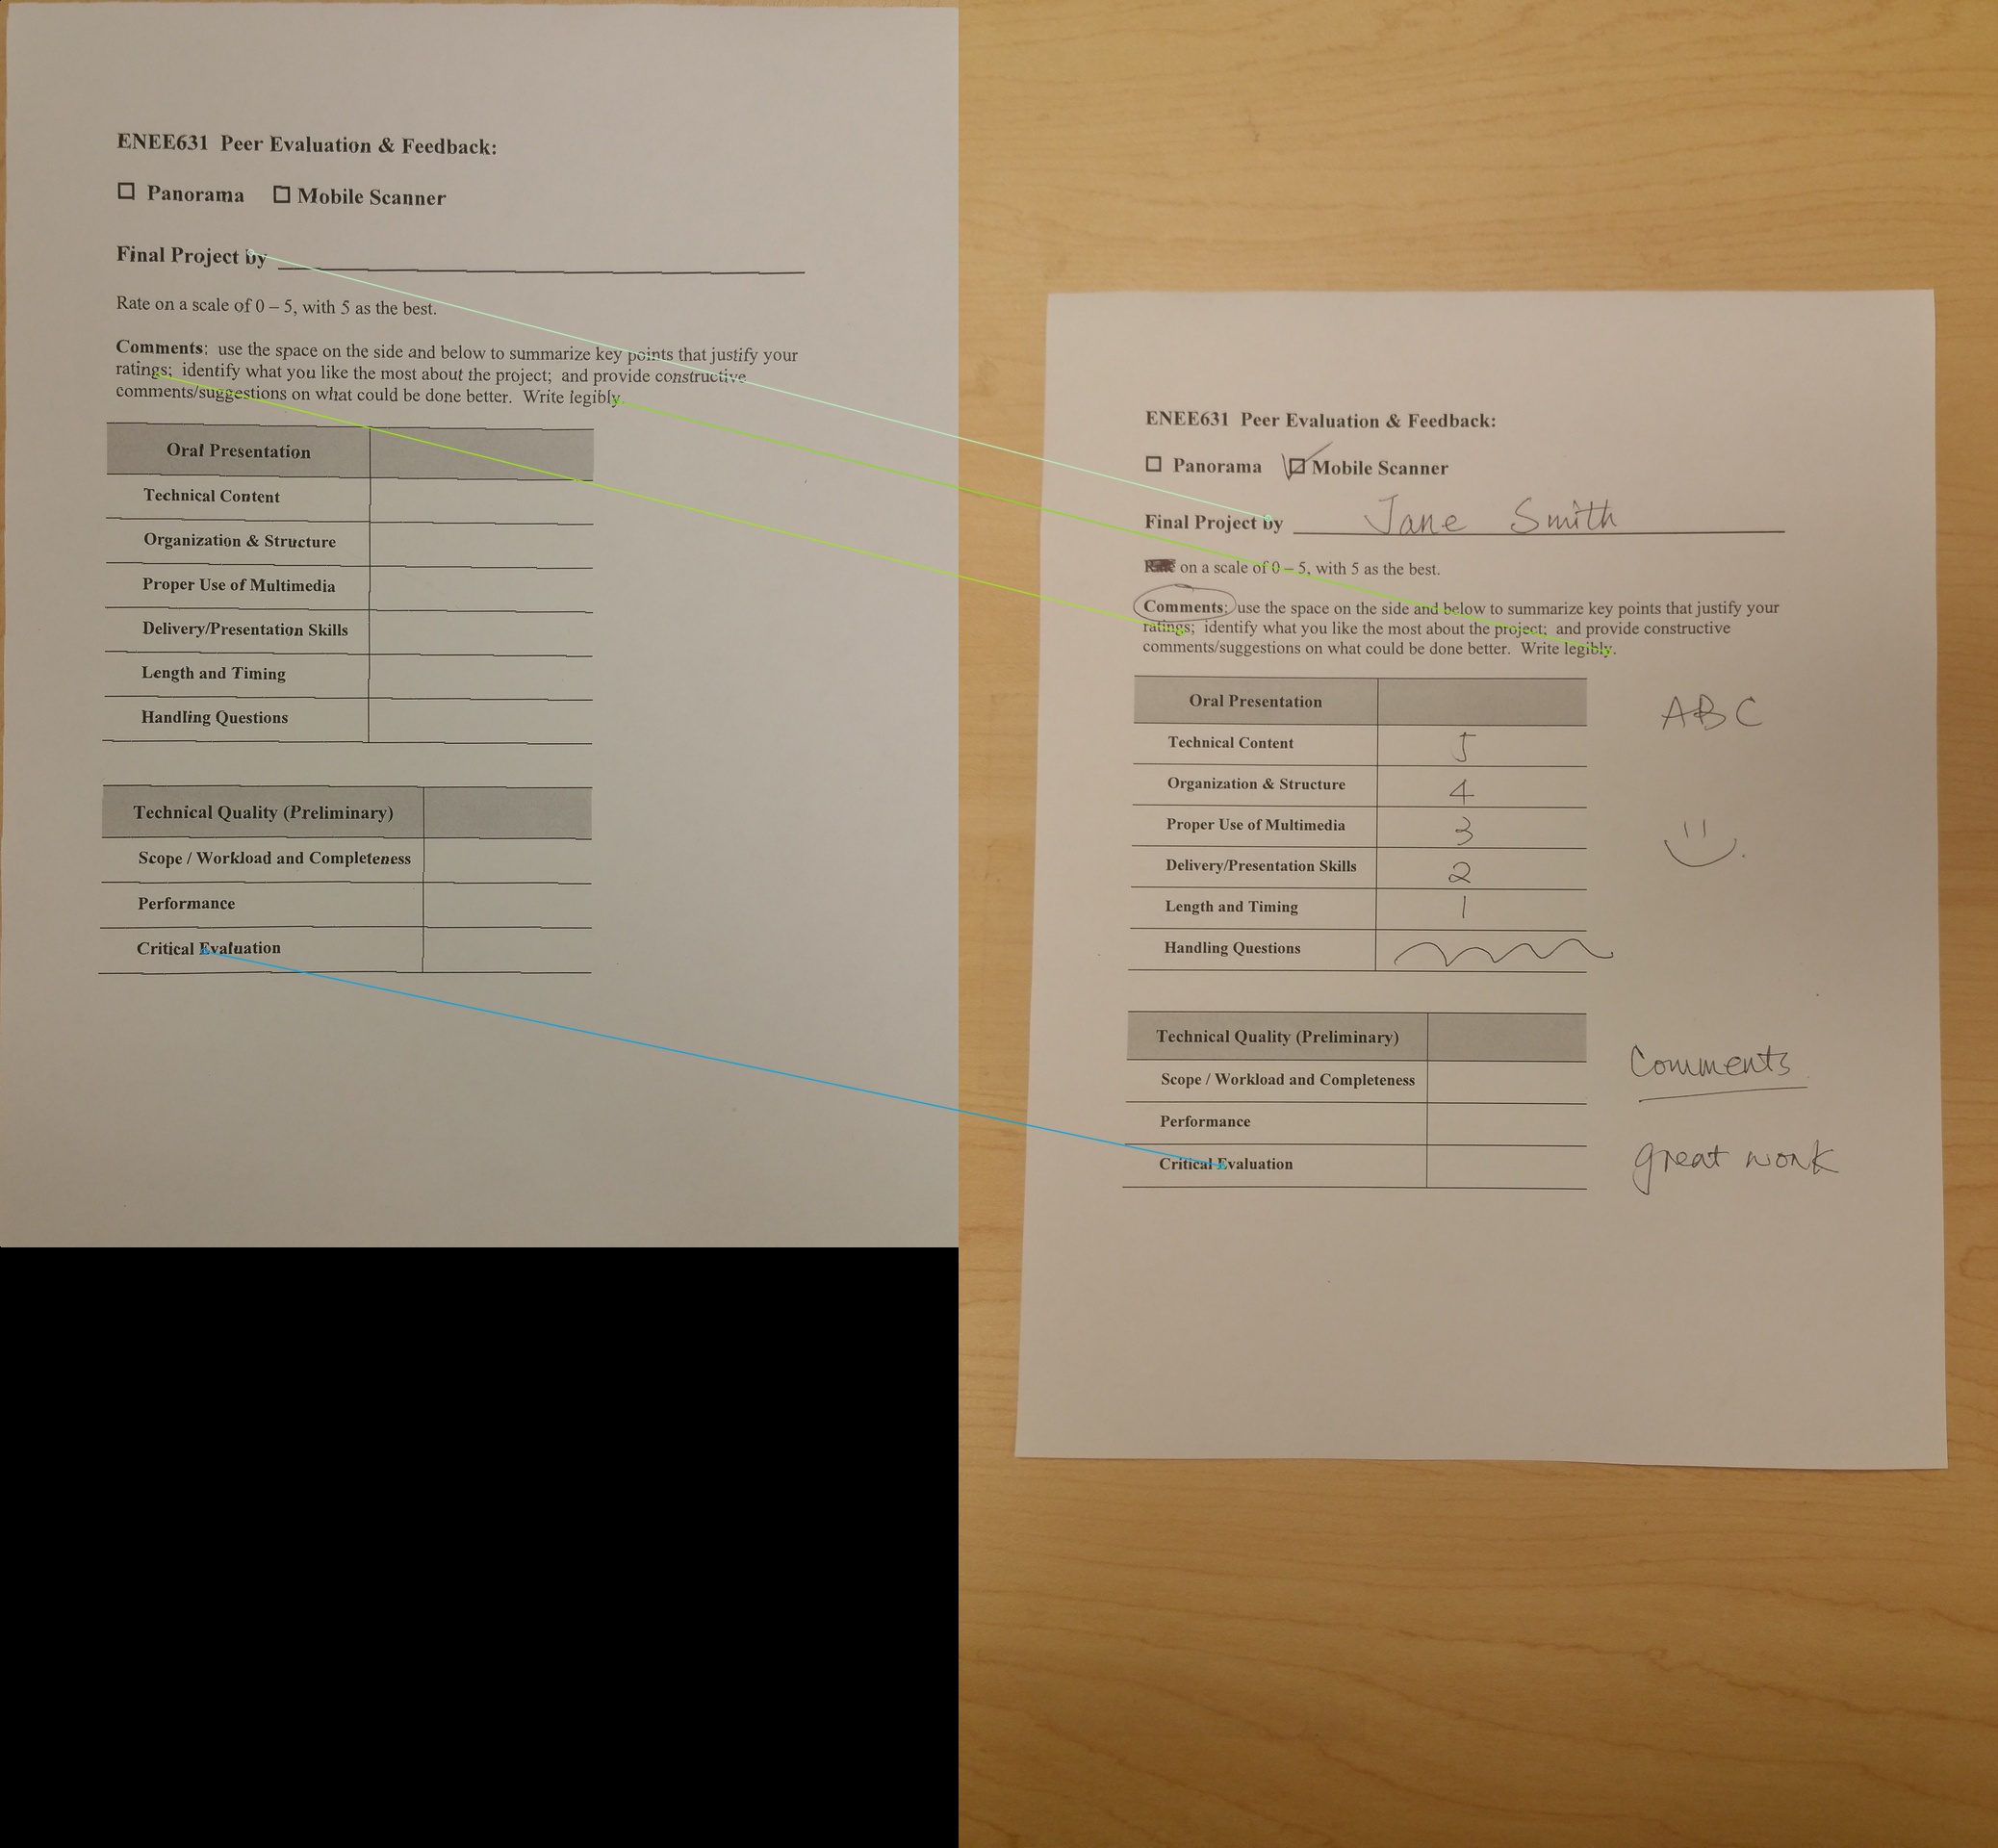 ENEE631 Peer Evaluation & Feedback:
☐ Panorama ☐ Mobile Scanner
Final Project by
Rate on a scale of 0 – 5, with 5 as the best.
Comments: use the space on the side and below to summarize key points that justify your
ratings; identify what you like the most about the project; and provide constructive
comments/suggestions on what could be done better. Write legibly.
Oral Presentation
Technical Content
Organization & Structure
Proper Use of Multimedia
Delivery/Presentation Skills
Length and Timing
Handling Questions
Technical Quality (Preliminary)
Scope / Workload and Completeness
Performance
Critical Evaluation
ENEE631 Peer Evaluation & Feedback:
☐ Panorama ☑ Mobile Scanner
Final Project by Jane Smith
on a scale of 0 – 5, with 5 as the best.
Comments: use the space on the side and below to summarize key points that justify your
ratings; identify what you like the most about the project; and provide constructive
comments/suggestions on what could be done better. Write legibly.
Oral Presentation
ABC
Technical Content 5
Organization & Structure 4
Proper Use of Multimedia 3
Delivery/Presentation Skills 2
Length and Timing 1
Handling Questions
Technical Quality (Preliminary)
Comments
Scope / Workload and Completeness
Performance
great work
Critical Evaluation